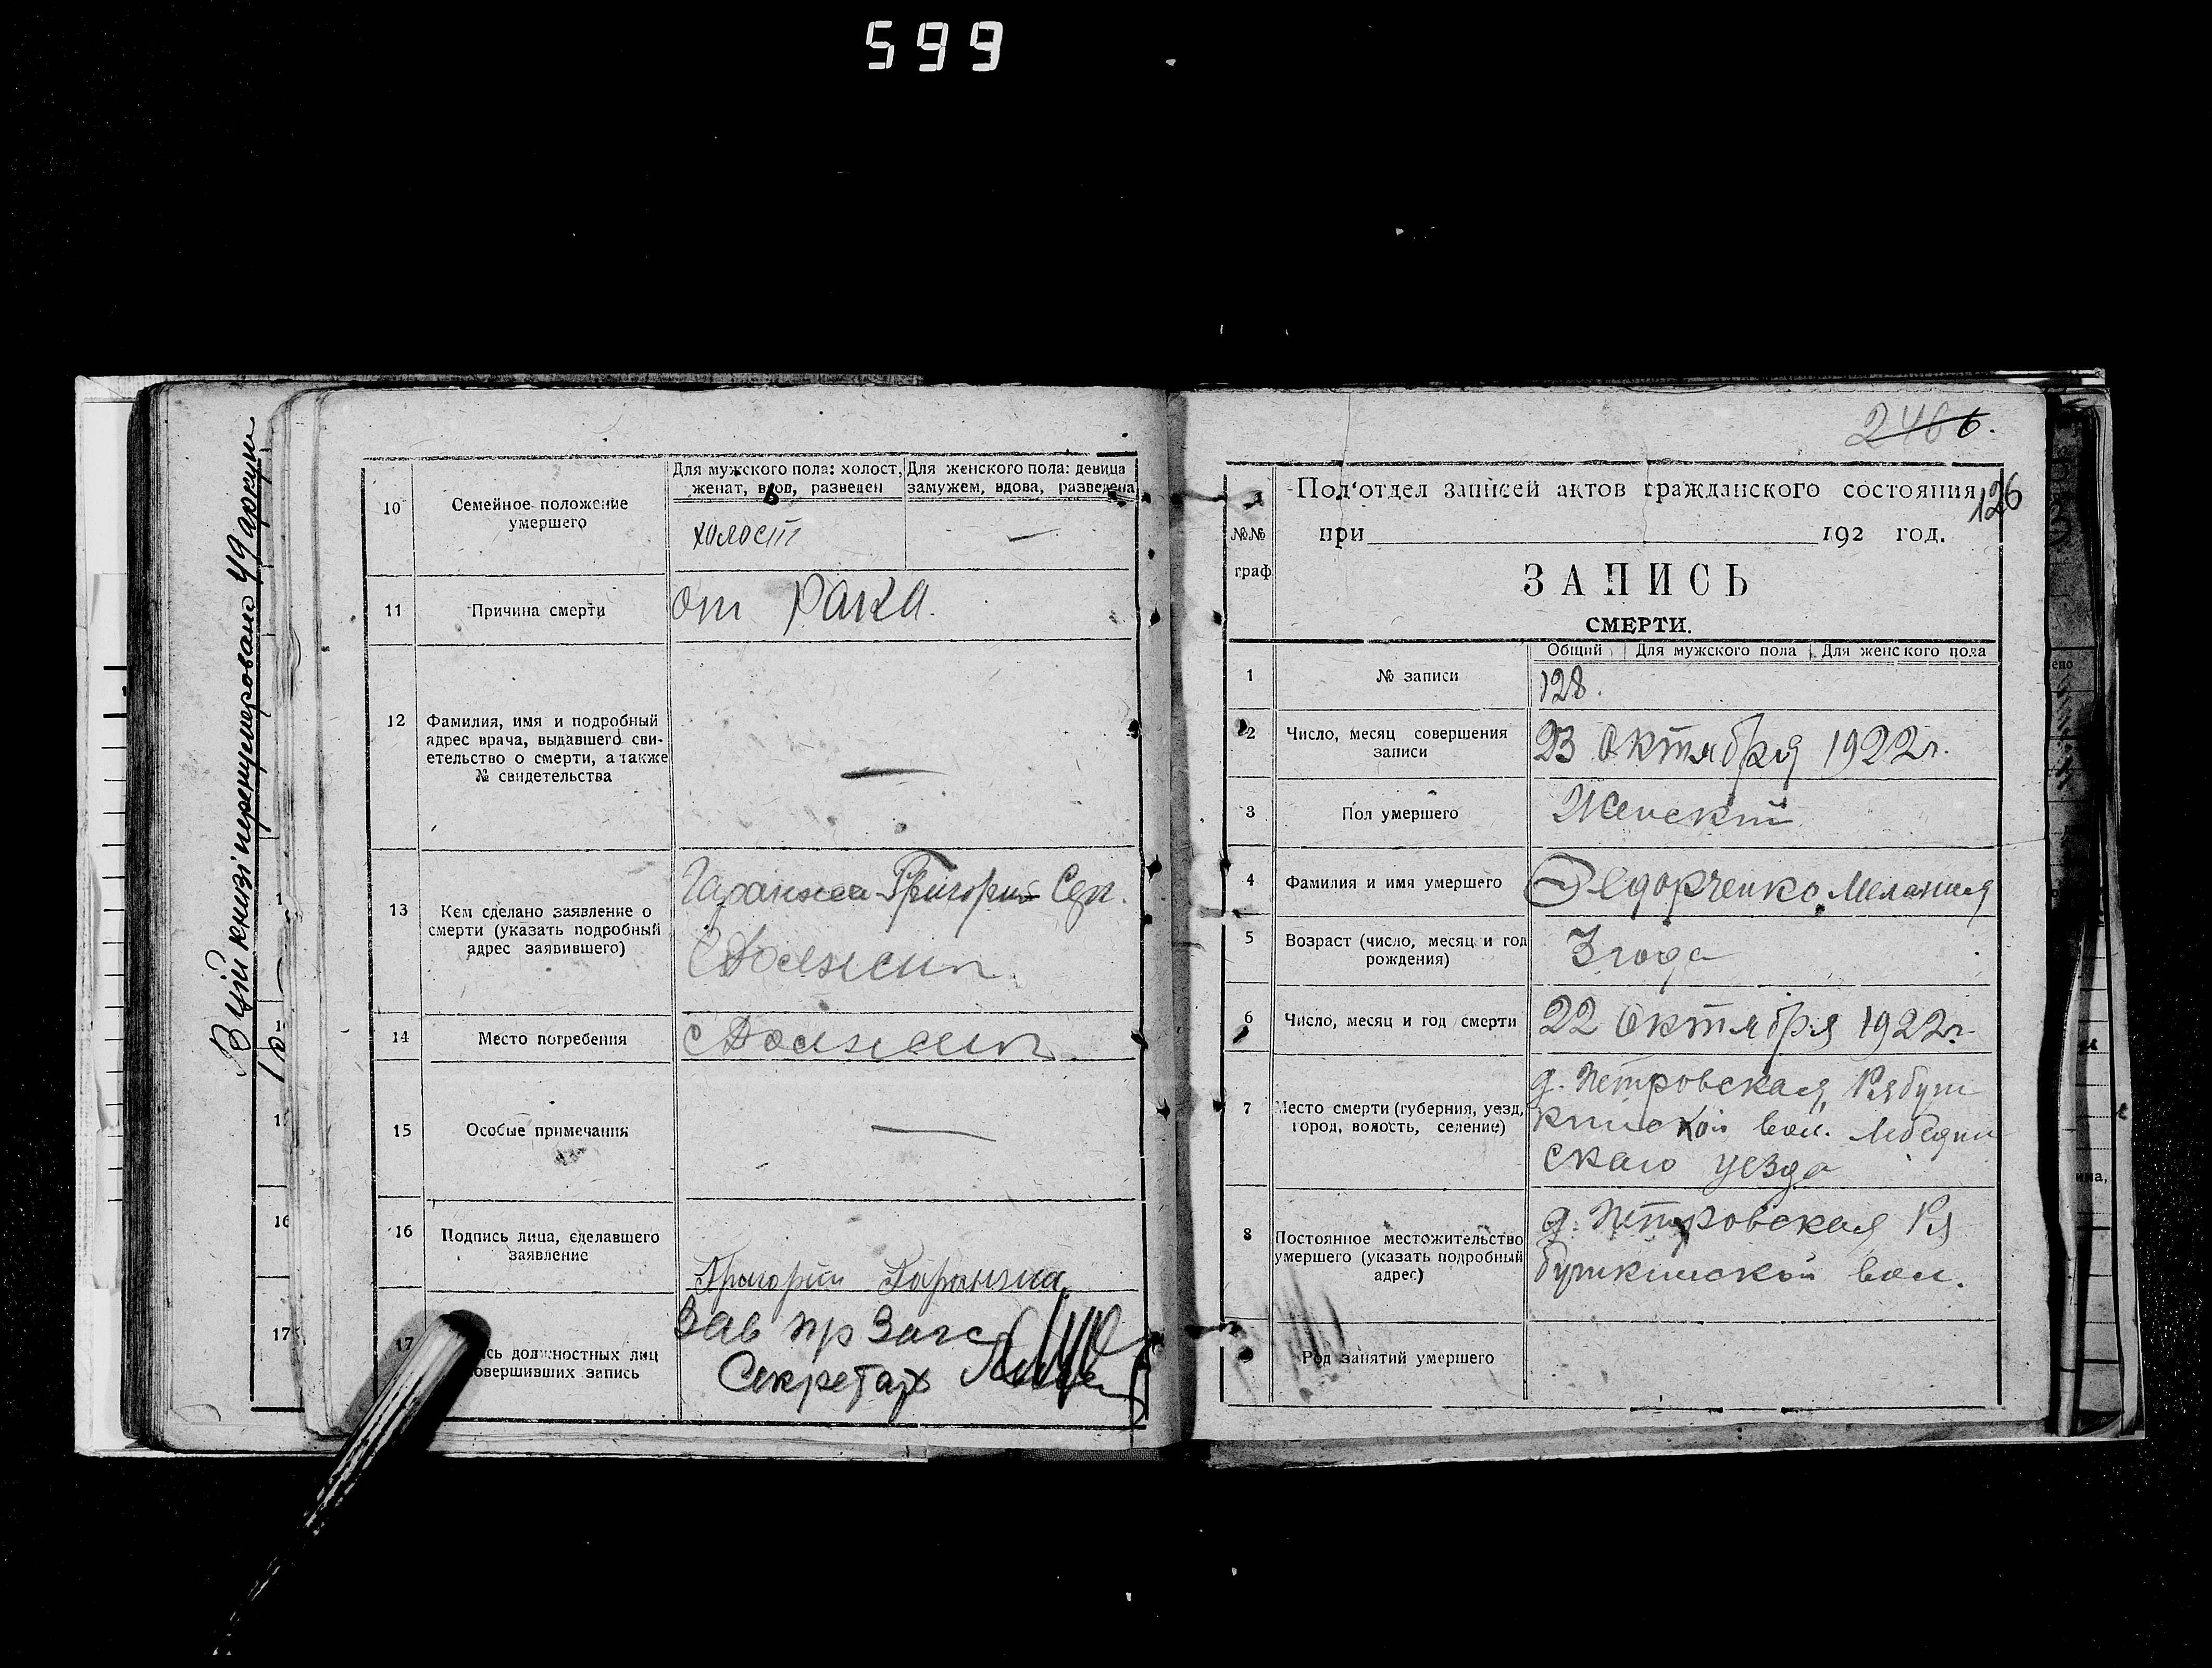 599
В цій книзі перенумеровано 49 аркуш
16
17
10
Семейное положение
умершего
Для мужского пола: холост,
женат, вдов, разведен
Для женского пола: девица
замужем, вдова, разведена
холост
—
11
Причина смерти
от рака.
12
Фамилия, имя и подробный
адрес врача, выдавшего сви-
етельство о смерти, а также
№ свидетельства
—
13
Кем сделано заявление о
смерти (указать подробный
адрес заявившего)
Гаранжа Григорий Сер.
14
Место погребения
15
Особые примечания
—
16
Подпись лица, сделавшего
заявление
Григорий Гаранжа
17
ись должностных лиц
овершивших запись
Зав пр Загс
Секретарь
2466.
126
Подотдел записей актов гражданского состояния
№№
граф
при 192 год.
ЗАПИСЬ
СМЕРТИ.
Общий Для мужского пола Для женского пола
1
№ записи
128.
2
Число, месяц совершения
записи
23 Октября 1922 г.
3
Пол умершего
Женский
4
Фамилия и имя умершего
Федорченко Мелания
5
Возраст (число, месяц и год
рождения)
3 года
6
Число, месяц и год смерти
22 Октября 1922 г.
7
Место смерти (губерния, уезд,
город, волость, селение)
д. Петровская Рябуш
кинской вол. Лебедин
скаго уезда
8
Постоянное местожительство
умершего (указать подробный
адрес)
д. Петровская Ря
бушкинской вол.
Род занятий умершего